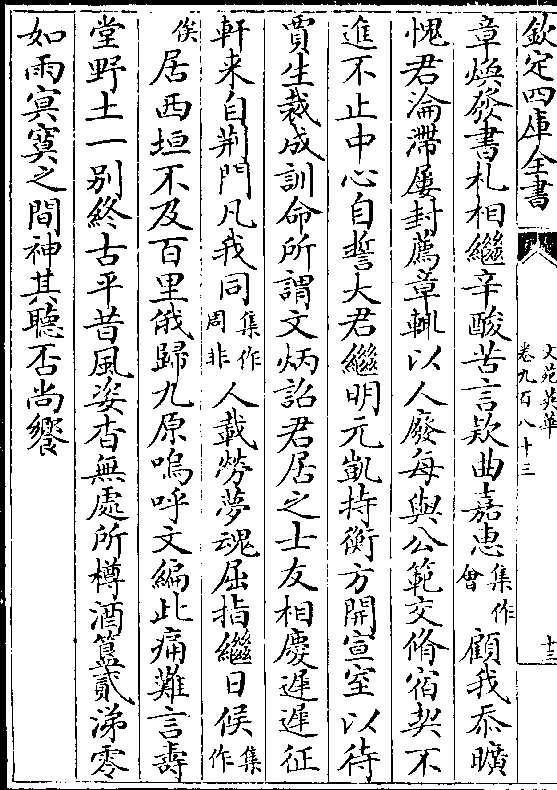 欽定四庫全書
文苑英華
卷九百八十三
十三
章煥發書札相繼辛酸苦言欵曲嘉惠集作會顧我忝曠
愧君淪滯屢封薦章輒以人廢每與公範交脩宿契不
進不止中心自誓大君繼明元凱持衡方開宣室以待
賈生裁成訓命所謂文炳詔君居之士友相慶遲遲征
軒来自荆門凡我同集作周非人載勞夢魂屈指繼日候集作
俟居西垣不及百里俄歸九原嗚呼文編此痛難言壽
堂野土一別終古平昔風姿杳無處所樽酒簋貳涕零
如雨冥寞之間神其聽否尚饗